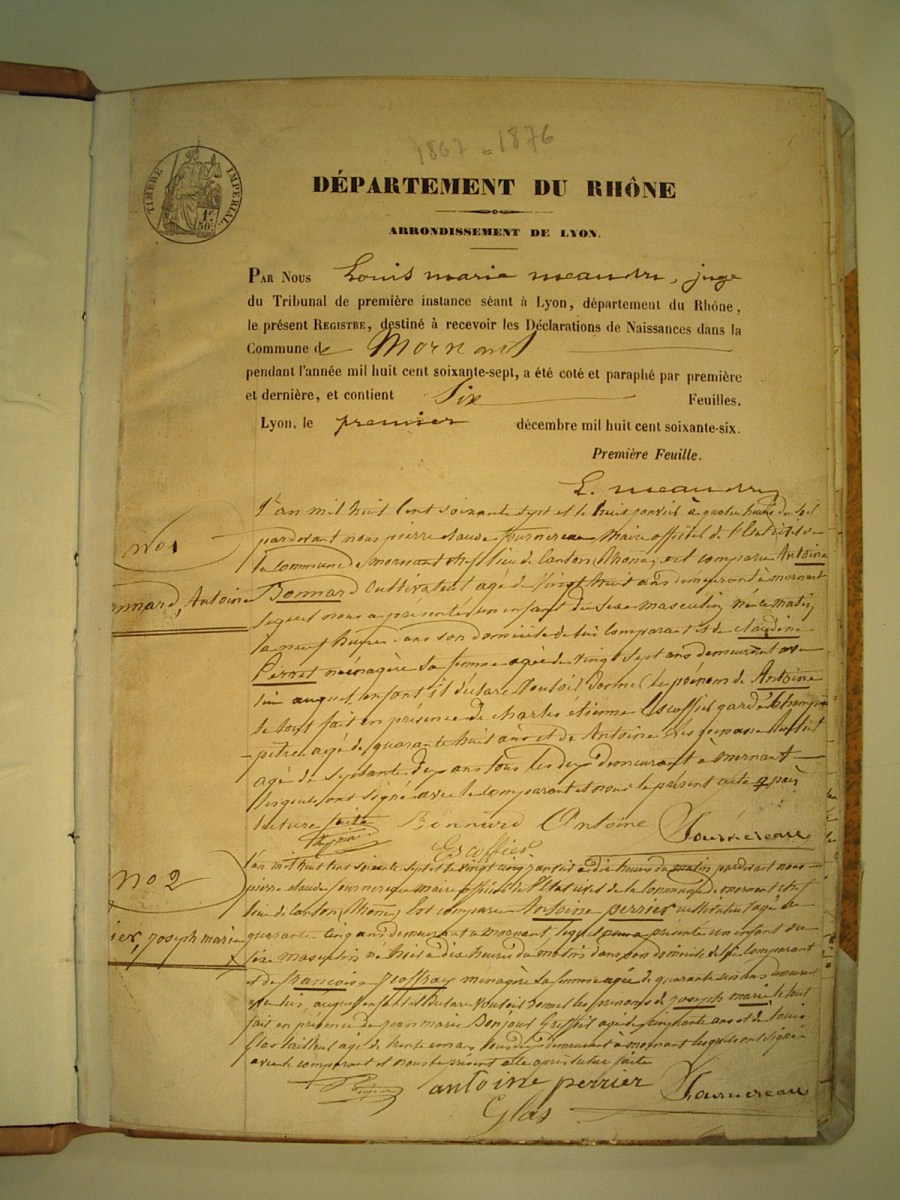 1867 - 1876
TIMBRE IMPERIAL
1F.
50c.
DÉPARTEMENT DU RHÔNE
ARRONDISSEMENT DE LYON.
PAR NOUS Louis marie meandre, juge
du Tribunal de première instance séant à Lyon, département du Rhône,
le présent REGISTRE, destiné à recevoir les Déclarations de Naissances dans la
Commune de Mornant
pendant l'année mil huit cent soixante-sept, a été coté et paraphé par première
et dernière, et contient Six Feuilles.
Lyon, le premier décembre mil huit cent soixante-six.
Première Feuille.
L. meandre
L'an mil huit cent soixante sept et le huit janvier à quatre heures du soir
No 1
pardevant nous pierre claude fournereau maire officier de l'Etat civil de
la commune de mornant chef lieu de canton (Rhône) est comparu Antoine
onnard, Antoine
Bonnard Cultivateur agé de vingt huit ans demeurant à mornant
lequel nous a présenté un enfant du sexe masculin né ce matin
à neuf heures dans son domicile de lui comparant et de claudine
Pernet ménagère sa femme agée de vingt sept ans demeurant avec
lui auquel enfant il déclare vouloir donner le prénom de Antoine
le tout fait en présence de charles etienne Escoffier garde champê
pêtre agé de quarante huit ans et de Antoine
agé de ans tous les deux demeurant à mornant
lesquels ont signé avec le comparant et nous le présent acte après
lecture faite
Bonnard Antoine Fournereau
Escoffier
L'an mil huit cent soixante sept et le vingt cinq janvier à dix heures du matin pardevant nous
No 2
pierre claude fournereau maire officier de l'Etat civil de la commune de mornant chef
lieu de canton (Rhône) Est comparu Antoine perrier cultivateur agé de
ier, joseph marie
quarante cinq ans demeurant à mornant lequel nous a présenté un enfant du
sexe masculin né hier à dix heures du matin dans son domicile de lui comparant
et de françoise joffray ménagère sa femme agée de quarante ans demeurant
avec lui, auquel enfant il déclare vouloir donner les prénoms de joseph marie le tout
fait en présence de jean marie Bonjour Greffier agé de cinquante ans et de louis
Glas agé de ans tous deux demeurant à mornant lesquels ont signé
avec le comparant et nous le présent acte après lecture faite
antoine perrier Fournereau
Glas